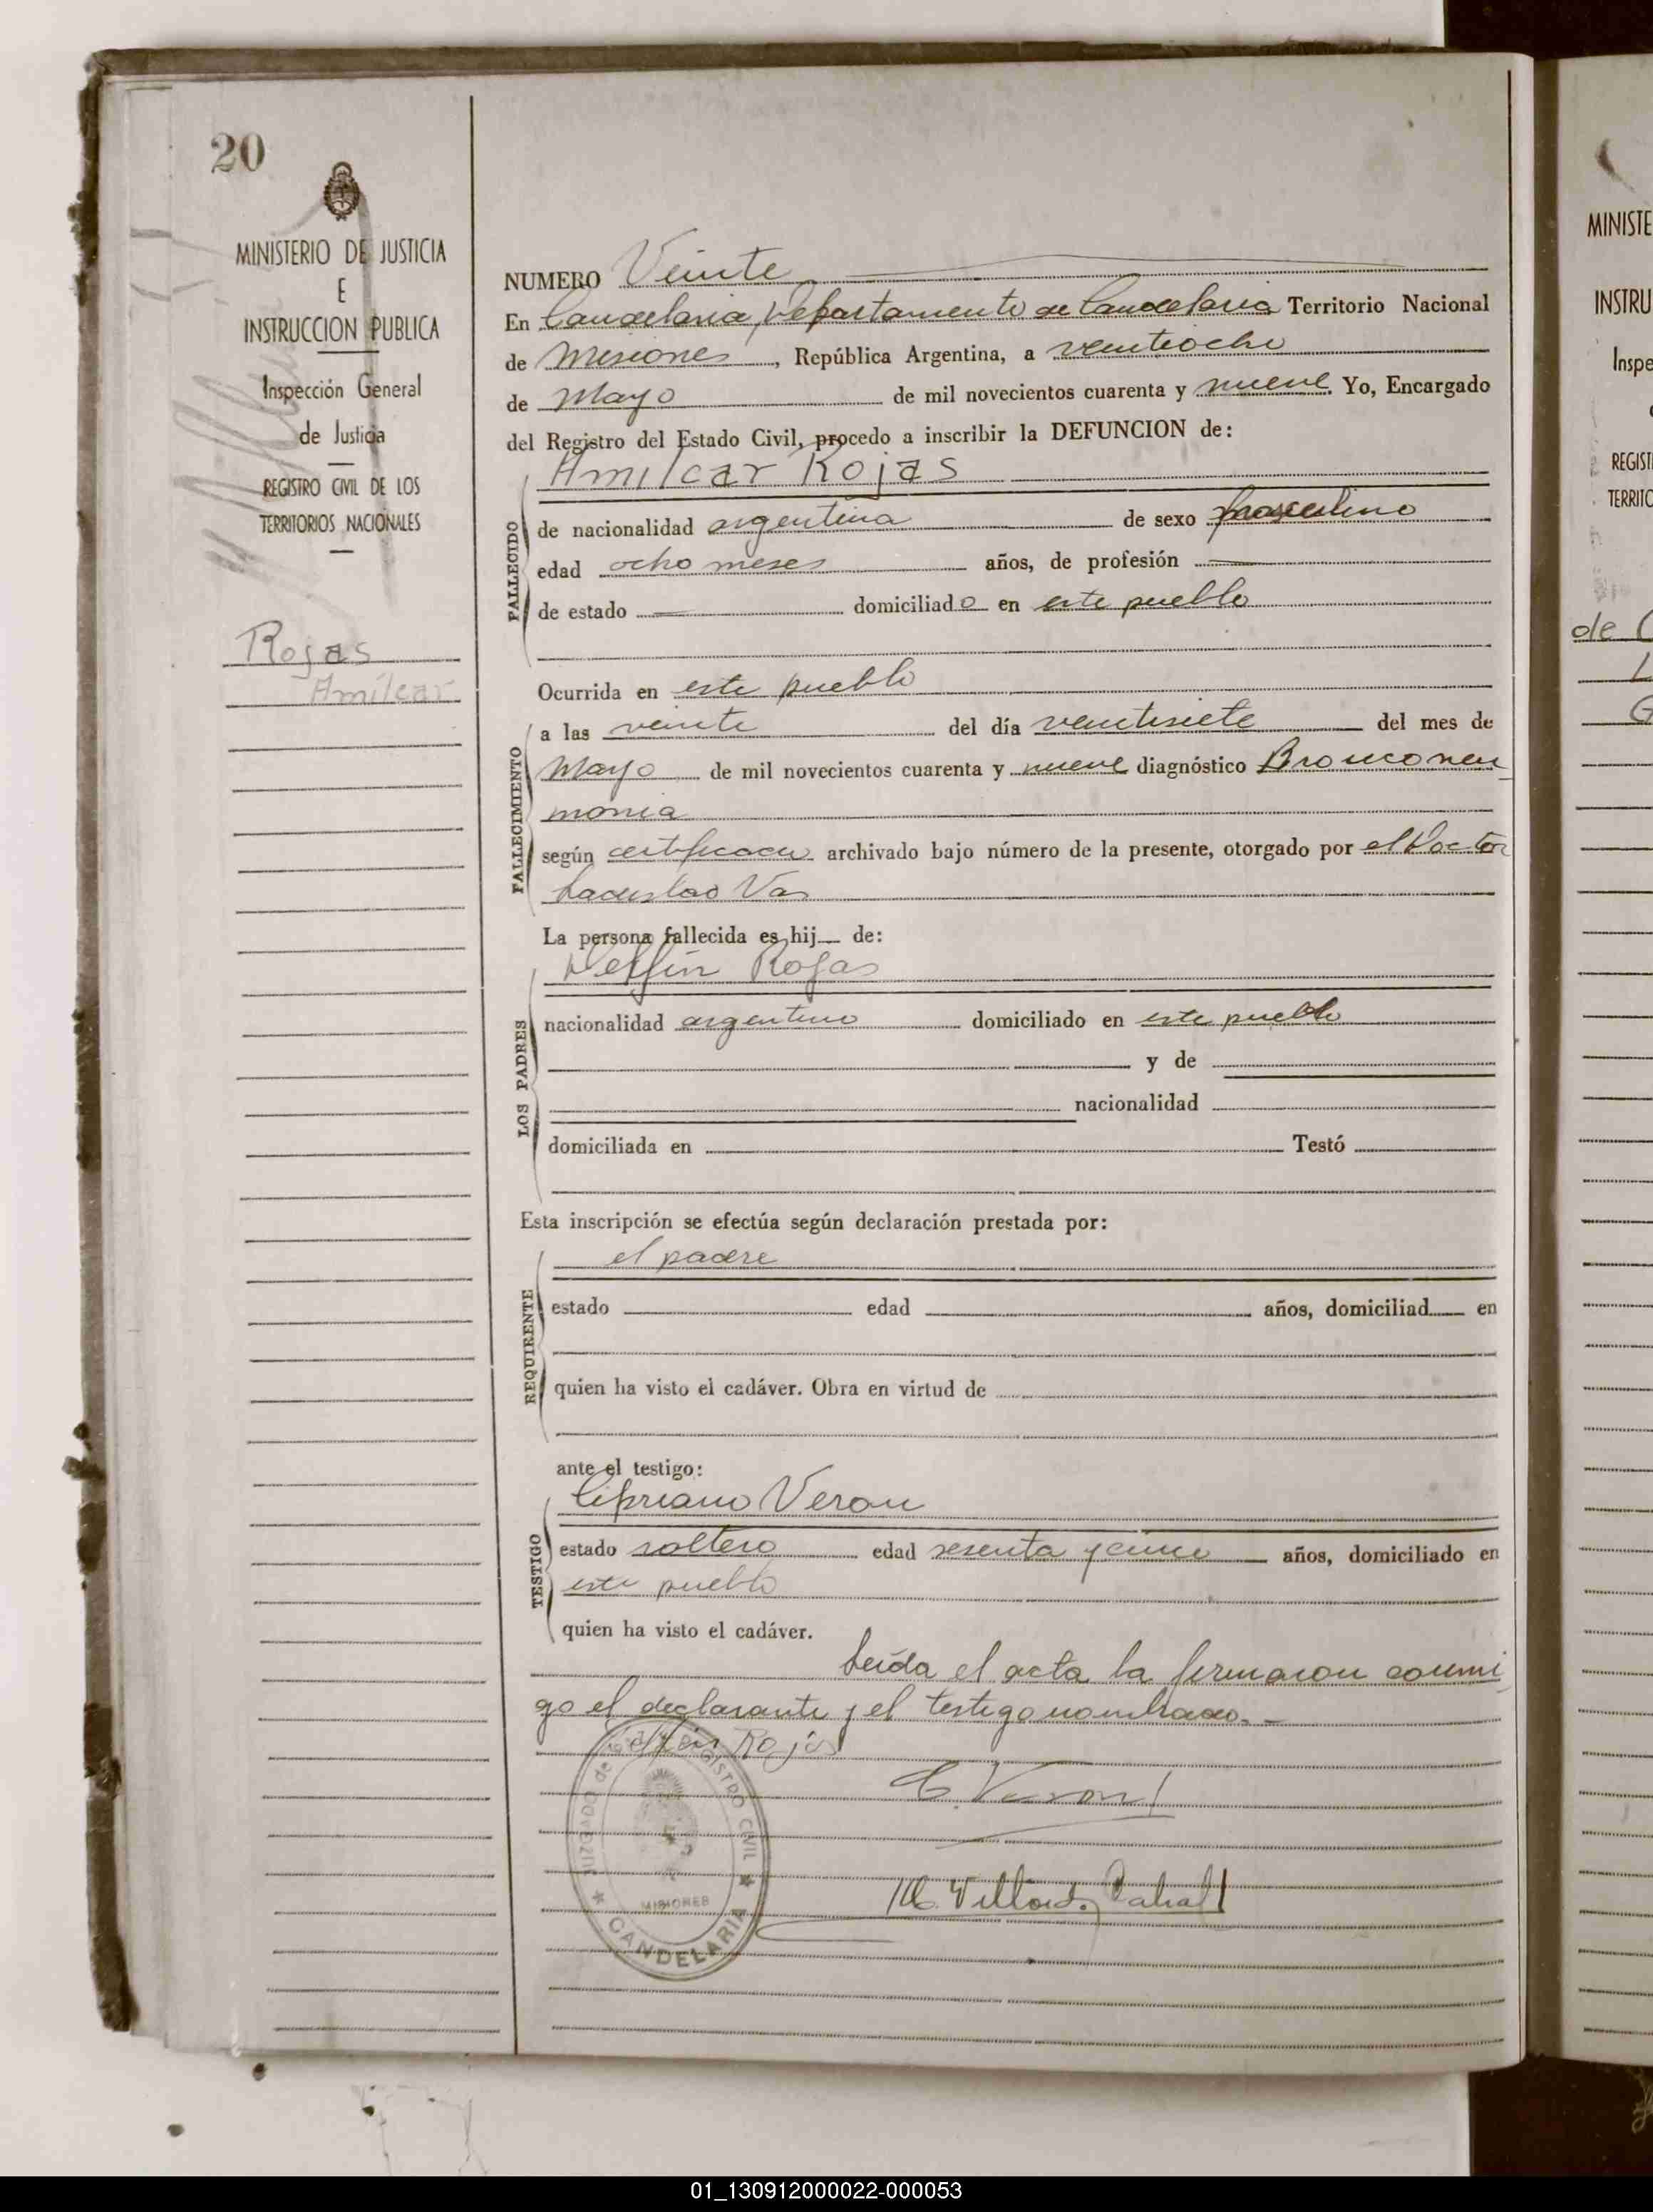 20
MINISTERIO DE JUSTICIA
E
INSTRUCCION PUBLICA
Inspección General
de Justicia
REGISTRO CIVIL DE LOS
TERRITORIOS NACIONALES
Rojas
Amílcar
NUMERO Veinte
En Candelaria, Departamento de Candelaria Territorio Nacional
de Misiones, República Argentina, a veintiocho
de Mayo de mil novecientos cuarenta y nueve Yo, Encargado
del Registro del Estado Civil, procedo a inscribir la DEFUNCION de:
Amilcar Rojas
FALLECIDO
de nacionalidad argentina de sexo masculino
edad ocho meses años, de profesión
de estado domiciliado en este pueblo
Ocurrida en este pueblo
FALLECIMIENTO
a las veinte del día veintisiete del mes de
Mayo de mil novecientos cuarenta y nueve diagnóstico Bronconeu
monia
según certificado archivado bajo número de la presente, otorgado por el Doctor
Ladislao Vas
La persona fallecida es hij de:
LOS PADRES
Delfín Rojas
nacionalidad argentino domiciliado en este pueblo
y de
nacionalidad
domiciliada en Testó
Esta inscripción se efectúa según declaración prestada por:
REQUIRENTE
el padre
estado edad años, domiciliad en
quien ha visto el cadáver. Obra en virtud de
ante el testigo:
TESTIGO
Cipriano Veron
estado soltero edad sesenta y cinco años, domiciliado en
este pueblo
quien ha visto el cadáver.
Leída el acta la firmaron conmi
go el declarante y el testigo nombrado.-
Delfin Rojas
C. Veron
REGISTRO CIVIL
MISIONES
CANDELARIA
MINISTE
INSTRU
Inspe
REGIST
TERRITO
de
L
G
01_130912000022-000053